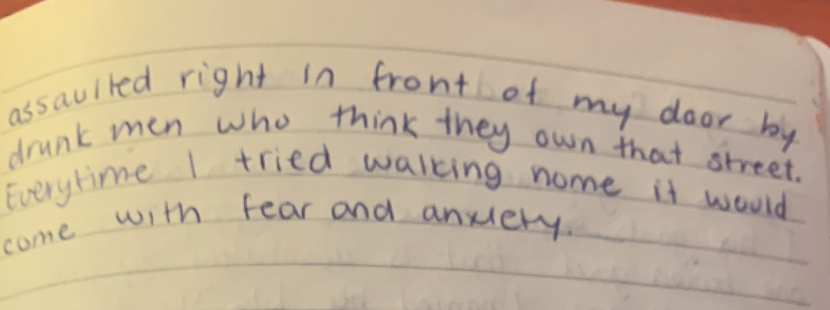 assaulted right in front of my door by
drunk men who think they own that street.
Everytime I tried walking home it would
come with fear and anxiety.